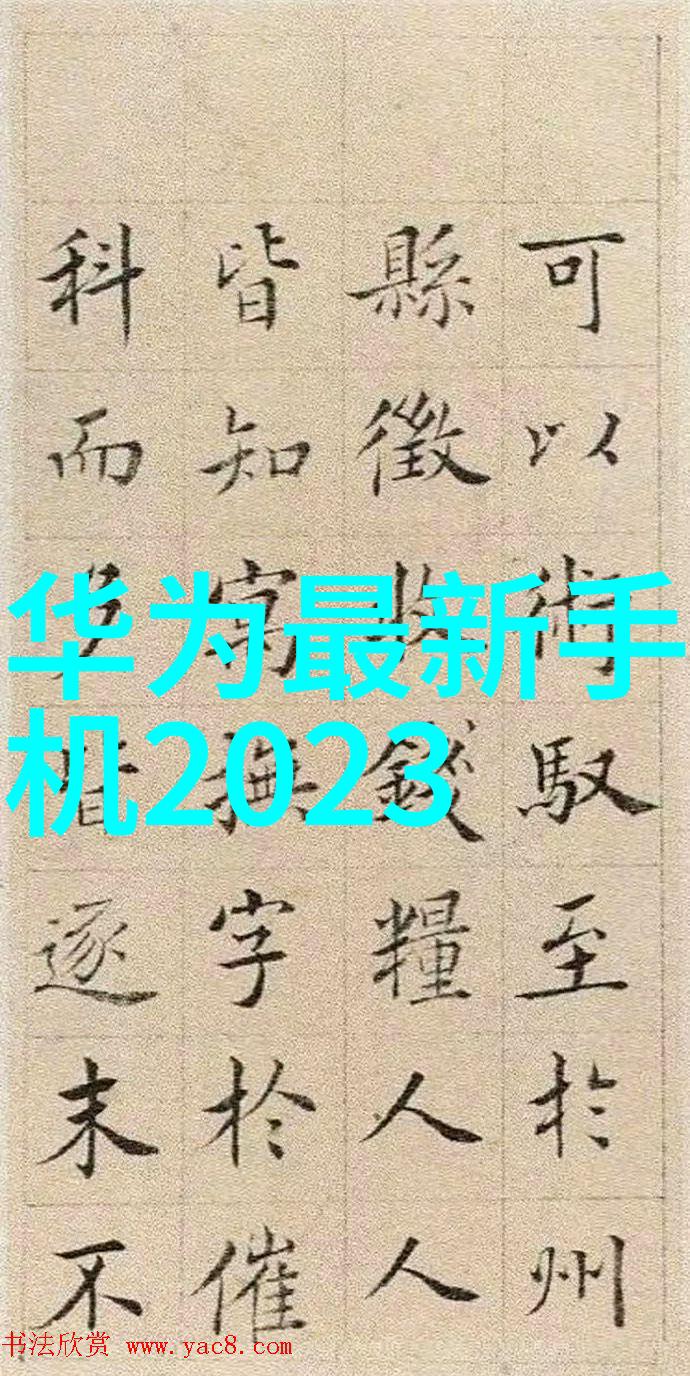 可以術馭至於州
縣徵收錢糧人人
皆知寓撫字於催
科而逐末不
华为最新手
机2023
书法欣赏 www.yac8.com